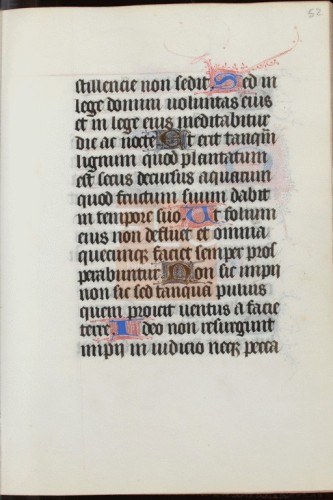 52
stillencie non sedit Sed in
lege domini voluntas eius
et in lege eius meditabitur
die ac nocte Et erit tanqm̄
lignum quod plantatum
est secus decursus aquarum
quod fructum suum dabit
in tempore suo. Et folium
eius non defluet et omnia
quecumqꝫ faciet semper pros
perabuntur Non sic impij
non sic sed tanquā puluis
quem proicit ventus a facie
terre Ideo non resurgunt
impij in iudicio neqꝫ pecca